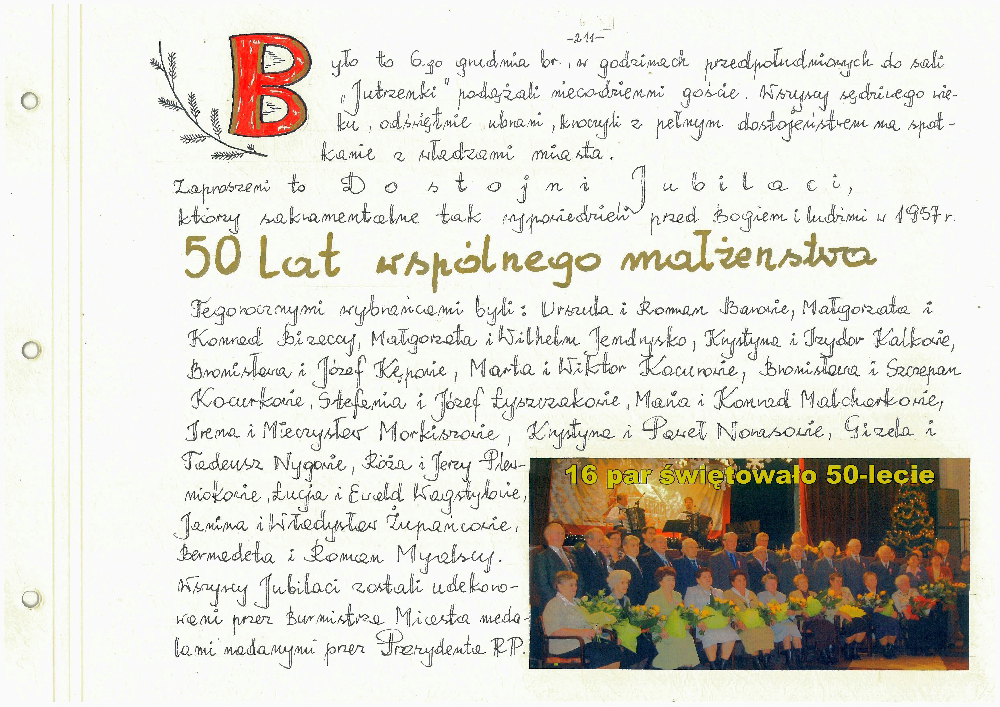 -211-
Było to 6.go grudnia br., w godzinach przedpołudniowych do sali
„Jutrzenki" podążali niecodzienni goście. Wszyscy sędziwego wie-
ku, odświętnie ubrani, kroczyli z pełnym dostojeństwem na spot-
kanie z władzami miasta.
Zaproszeni to Dostojni Jubilaci,
którzy sakramentalne tak wypowiedzieli przed Bogiem i ludźmi w 1957 r.
50 Lat wspólnego małżenstwa
Tegorocznymi wybrańcami byli: Urszula i Roman Banowie, Małgorzata i
Konrad Bizaccy, Małgorzata i Wilhelm Jendrysko, Krystyna i Izydor Kalkowie,
Bronisława i Józef Kępowie, Marta i Wiktor Kacurowie, Bronisława i Szczepan
Kocurkowie, Stefania i Józef Łyszczakowie, Maria i Konrad Malcharkowie,
Irena i Mieczysław Morkiszowie, Krystyna i Paweł Norasowie, Gizela i
Tadeusz Nygowie, Róża i Jerzy Plew-
niokowie, Łucja i Ewald Wagstylowie,
Janina i Władysław Żupańcowie,
Bernadeta i Roman Myralscy.
Wszyscy Jubilaci zostali udekoro-
wani przez Burmistrza Miasta meda-
lami nadanymi przez Prezydenta RP.
16 par świętowało 50-lecie